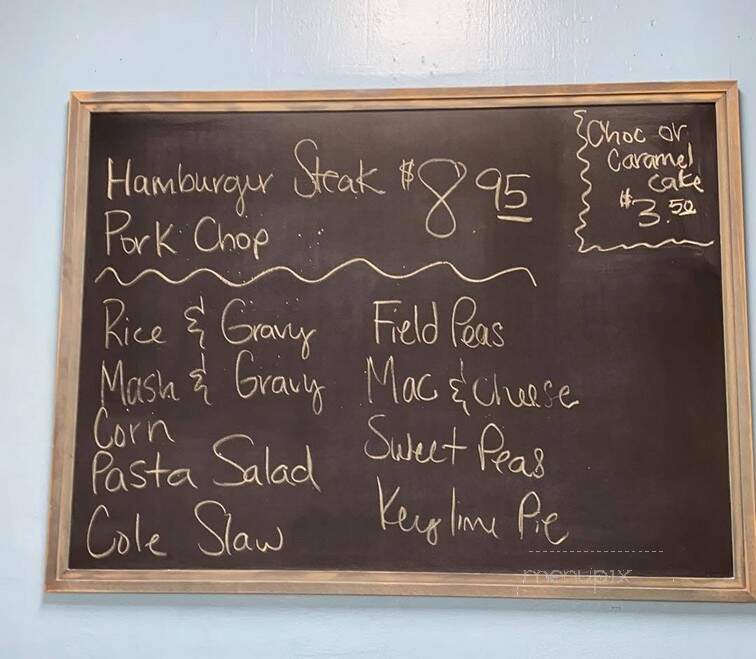 Hamburgur Steak $8.95
Pork Chop
Choc or
Caramel
cake
$3.50
Rice & Gravy
Mash & Gravy
Corn
Pasta Salad
Cole Slaw
Field Peas
Mac & Cheese
Sweet Peas
Key lime Pie
menupix